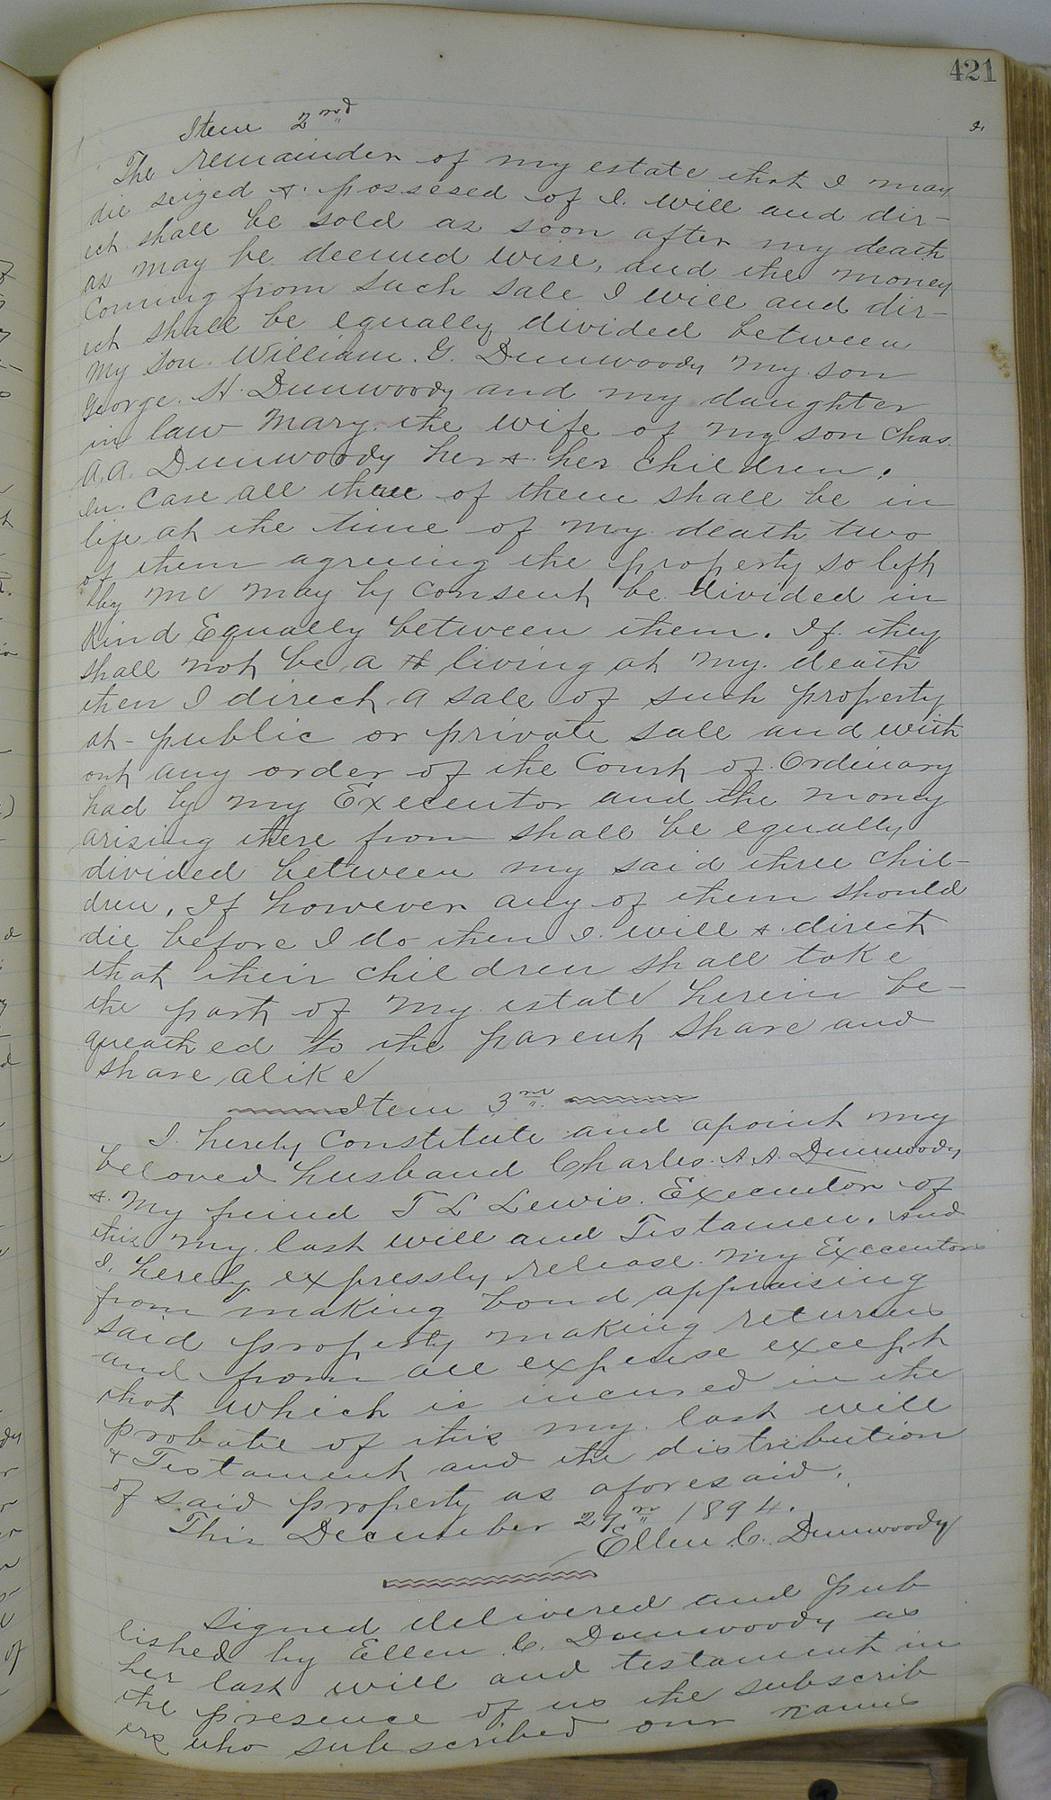 421
Item 2nd
The remainder of my estate that I may
die seized & possesed of I will and dir-
ect shall be sold as soon after my death
as may be deemed wise, and the money
Coming from such sale I will and dir-
ect shall be equally divided between
my Son William G. Dunwoody my son
George. H. Dunwoody and my daughter
in law Mary the wife of my son Chas.
A.A. Dunwoody her & her children.
In. Case all three of them shall be in
life at the time of my death two
of them agreeing the property so left
by me may by consent be divided in
Kind Equally between them. If they
shall not be a living at my death
then I direct a sale of such property
at public or private sale and with
out any order of the Court of Ordinary
had by my Executor and the money
arising there from shall be equally
divided between my said three chil-
dren. If however any of them should
die before I do then I will & direct
that their children shall take
the part of my estate herein be-
queathed to the parent share and
share alike
Item 3rd
I hereby Constitute and apoint my
beloved husband Charles A A. Dunwoody
& my friend T L Lewis Executor of
this my last will and Testamen. And
I. hereby expressly release my Executors
from making bond appraising
said property making returns
and from all expense except
that which is incured in the
probate of this my last will
& Testament and the distribution
of said property as aforesaid.
This December 27th 1894.
Ellen C. Dunwoody
Signed delivered and pub
lished by Ellen C. Dunwoody as
her last will and testament in
the presence of us the subscrib
ers who subscribed our names